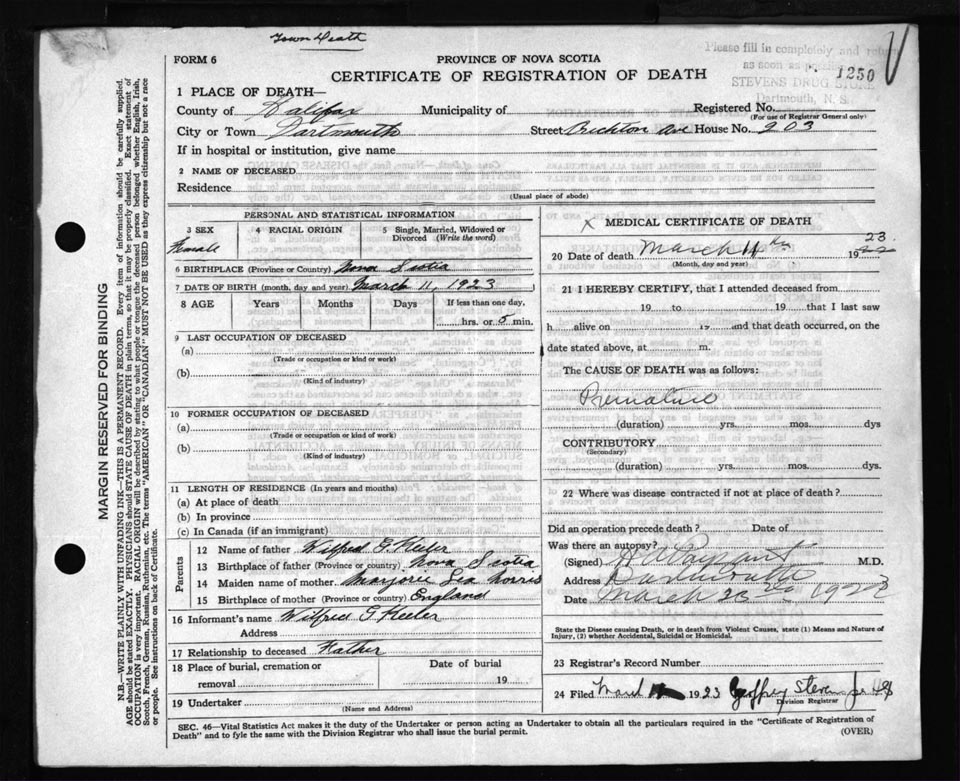 Town Death
FORM 6
PROVINCE OF NOVA SCOTIA
CERTIFICATE OF REGISTRATION OF DEATH
Please fill in completely and return
as soon as
STEVENS DRUG STORE
Dartmouth, N. S.
1250
1 PLACE OF DEATH—
County of Halifax Municipality of Registered No.
(For use of Registrar General only)
City or Town Dartmouth Street Brighton Ave House No. 203
If in hospital or institution, give name
2 NAME OF DECEASED
Residence
(Usual place of abode)
PERSONAL AND STATISTICAL INFORMATION
3 SEX
Female
4 RACIAL ORIGIN
5 Single, Married, Widowed or
Divorced (Write the word)
6 BIRTHPLACE (Province or Country) Nova Scotia
7 DATE OF BIRTH (month, day and year) March 11, 1923
8 AGE Years Months Days If less than one day,
hrs. or 5 min.
9 LAST OCCUPATION OF DECEASED
(a)
(Trade or occupation or kind or work)
(b)
(Kind of industry)
10 FORMER OCCUPATION OF DECEASED
(a)
(Trade or occupation or kind of work)
(b)
(Kind of industry)
11 LENGTH OF RESIDENCE (In years and months)
(a) At place of death
(b) In province
(c) In Canada (if an immigrant)
Parents
12 Name of father Wilfred G. Keeler
13 Birthplace of father (Province or country) Nova Scotia
14 Maiden name of mother Marjorie Lea Norris
15 Birthplace of mother (Province or country) England
16 Informant's name Wilfred G Keeler
Address
17 Relationship to deceased Father
18 Place of burial, cremation or
removal
Date of burial
19
19 Undertaker
(Name and Address)
X MEDICAL CERTIFICATE OF DEATH
20 Date of death March 11th 1922 23
(Month, day and year)
21 I HEREBY CERTIFY, that I attended deceased from
19 to 19 that I last saw
h alive on 19 and that death occurred, on the
date stated above, at m.
The CAUSE OF DEATH was as follows:
Premature
(duration) yrs. mos. dys
CONTRIBUTORY
(Secondary)
(duration) yrs. mos. dys.
22 Where was disease contracted if not at place of death?
Did an operation precede death? Date of
Was there an autopsy?
(Signed) Payzant M.D.
Address Dartmouth
Date March 23rd 1922
State the Disease causing Death, or in death from Violent Causes, state (1) Means and Nature of
Injury, (2) whether Accidental, Suicidal or Homicidal.
23 Registrar's Record Number
24 Filed March 1923 Geoffrey Stevens
Division Registrar
SEC. 46—Vital Statistics Act makes it the duty of the Undertaker or person acting as Undertaker to obtain all the particulars required in the "Certificate of Registration of
Death" and to fyle the same with the Division Registrar who shall issue the burial permit.
(OVER)
MARGIN RESERVED FOR BINDING
N.B.—WRITE PLAINLY WITH UNFADING INK—THIS IS A PERMANENT RECORD. Every item of information should be carefully supplied.
AGE should be stated EXACTLY. PHYSICIANS should STATE CAUSE OF DEATH in plain terms, so that it may be properly classified. Exact statement of
OCCUPATION is very important. RACIAL ORIGIN will be described by stating to what people or tongue the deceased person belonged whether English, Irish,
Scotch, French, German, Russian, Ruthenian, etc. The terms "AMERICAN" or "CANADIAN" MUST NOT BE USED as they express citizenship but not a race
or people. See instructions on back of Certificate.